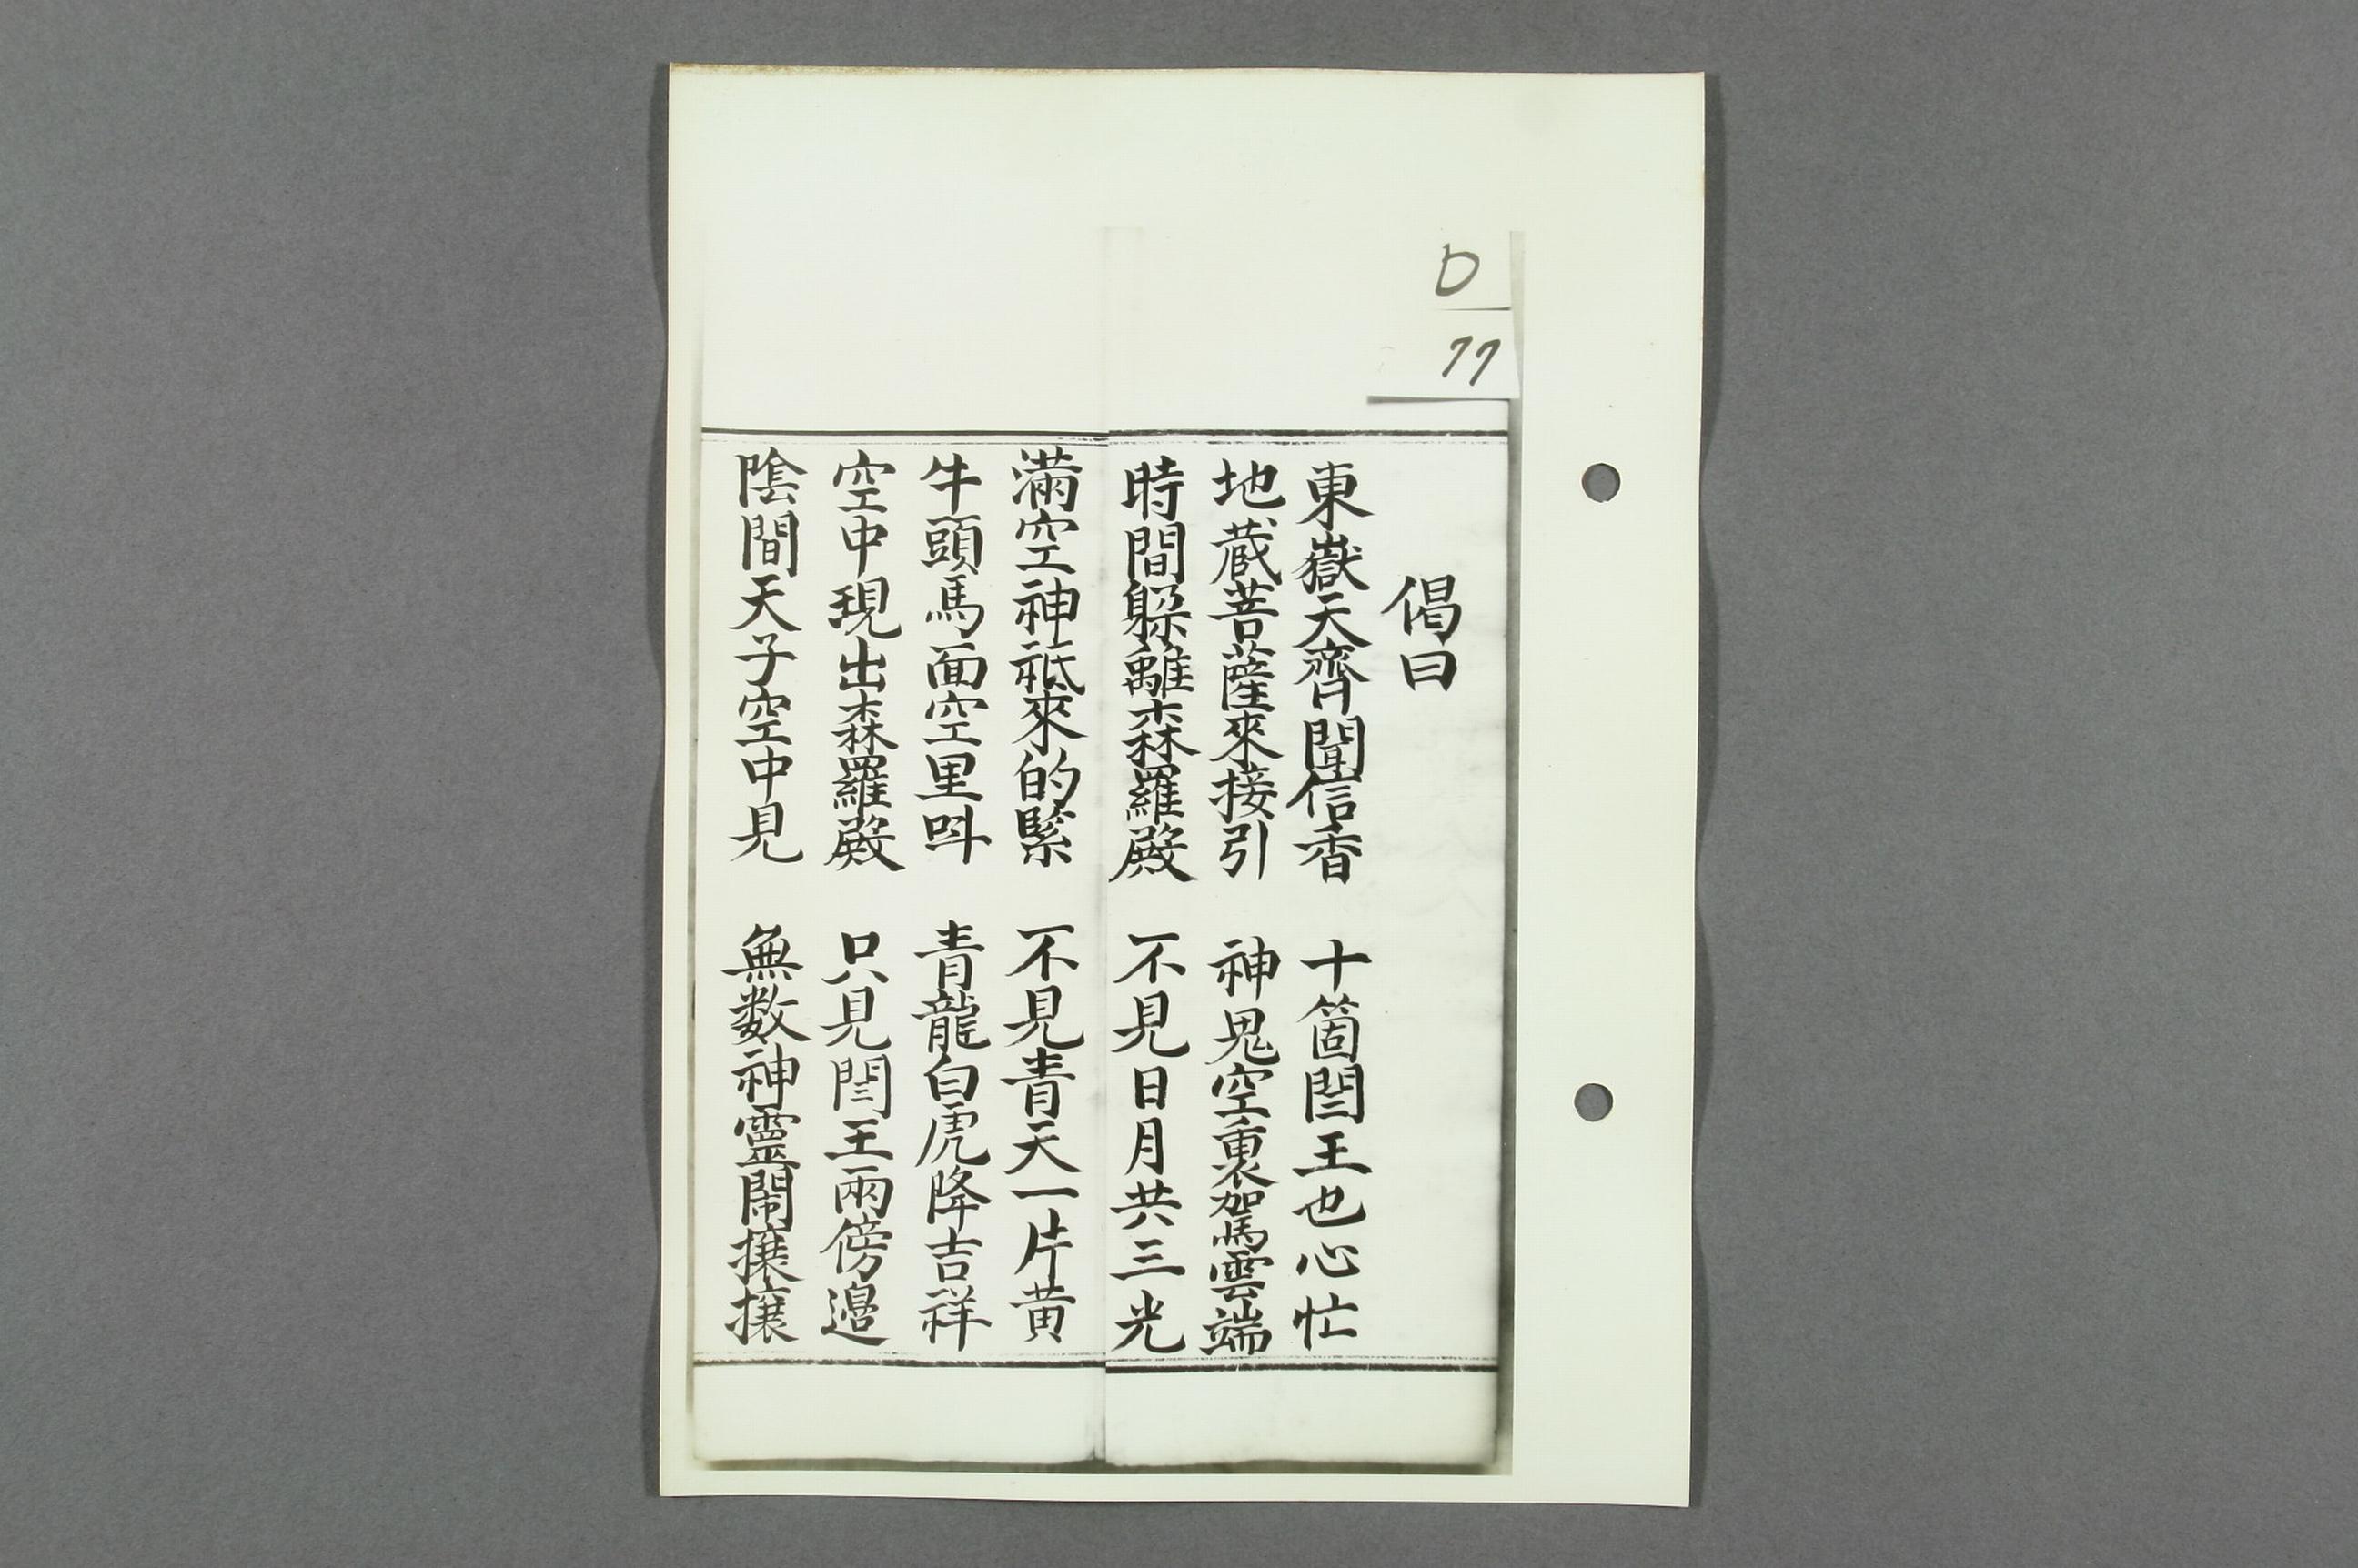 D
77
偈曰
東嶽天齊聞信香　十箇閻王也心忙
地蔵菩薩來接引　神鬼空裏駕雲端
時間躱離森羅殿　不見日月共三光
滿空神祗來的緊　不見青天一片黄
牛頭馬面空里呌　青龍白虎降吉祥
空中現出森羅殿　只見閆王兩傍邉
陰間天子空中見　無数神靈鬧攘攘